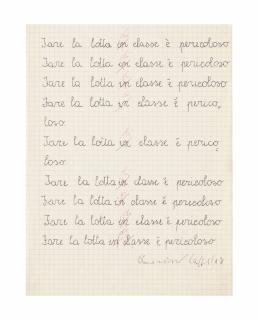 Fare la lotta in classe è pericoloso
Fare la lotta in classe è pericoloso
Fare la lotta in classe è pericoloso
Fare la lotta in classe è perico,
loso
Fare la lotta in classe è perico,
loso
Fare la lotta in classe è pericoloso
Fare la lotta in classe è pericoloso
Fare la lotta in classe è pericoloso
Fare la lotta in classe è pericoloso